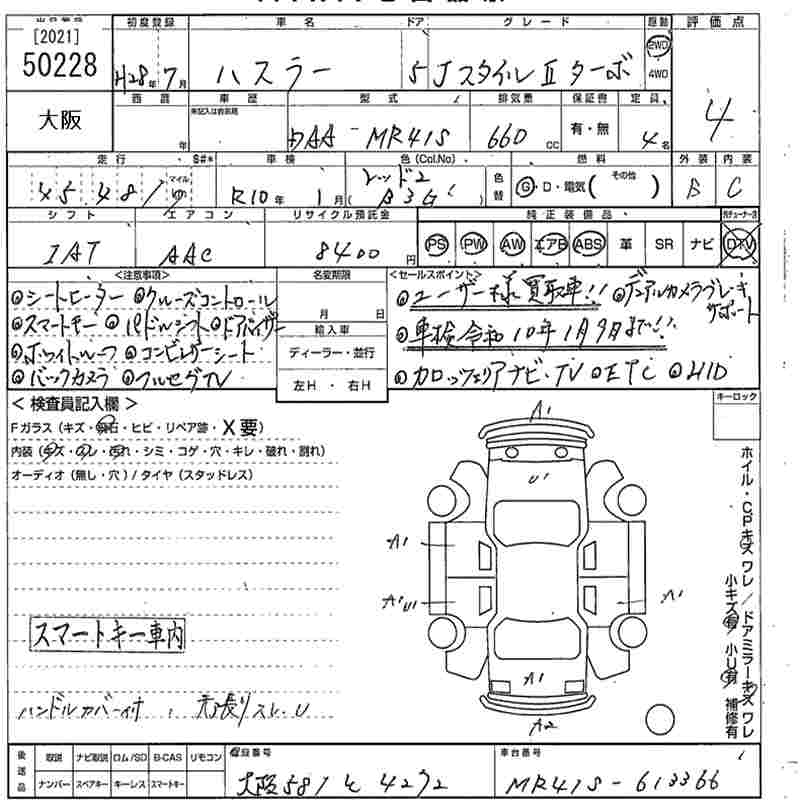 [2021]
50228
初度登録 車名 ドア グレード 原動 評価点
H28年7月 ハスラー 5 JスタイルⅡターボ 2WD 4WD 4
大阪
西暦 車歴 型式 排気量 保証書 定員
年 未記入は自家用 DAA-MR41S 660cc 有・無 4名
走行 S#* 車検 色(Col.No) 燃料 外装 内装
45,481 マイル R10年1月 レッド2 色替 G・D・電気( その他 ) B C
シフト エアコン リサイクル預託金 純正装備品
IAT AAC 8400円 PS PW AW エアB ABS 革 SR ナビ DTV
<注意事項> 名変期限 <セールスポイント>
◎シートヒーター ◎クルーズコントロール
◎スマートキー ◎パドルシフト ◎ドアバイザー
◎ホワイトルーフ ◎コンビレザーシート
◎バックカメラ ◎フルセグTV
月 日
輸入車
ディーラー・並行
左H・右H
◎ユーザー様買取車!! ◎デュアルカメラブレーキサポート
◎車検令和10年1月9日まで!!
◎カロッツェリアナビ・TV ◎ETC ◎HID
< 検査員記入欄 >
Fガラス(キズ・飛石・ヒビ・リペア跡・X要)
内装(キズ・スレ・汚れ・シミ・コゲ・穴・キレ・破れ・割れ)
オーディオ(無し・穴)/タイヤ(スタッドレス)
キーロック
A1
U1
A1
A1 U1
A1
A1
A2
ホイル・CPキズ ワレ/ドアミラーキズ ワレ
小キズ有/小U有/補修有
スマートキー車内
ハンドルカバー付
スレ、U
後送品 取説 ナビ取説 ロム/SD B-CAS リモコン 登録番号 車台番号
ナンバー スペアキー キーレス スマートキー 大阪581 4272 MR41S-613366